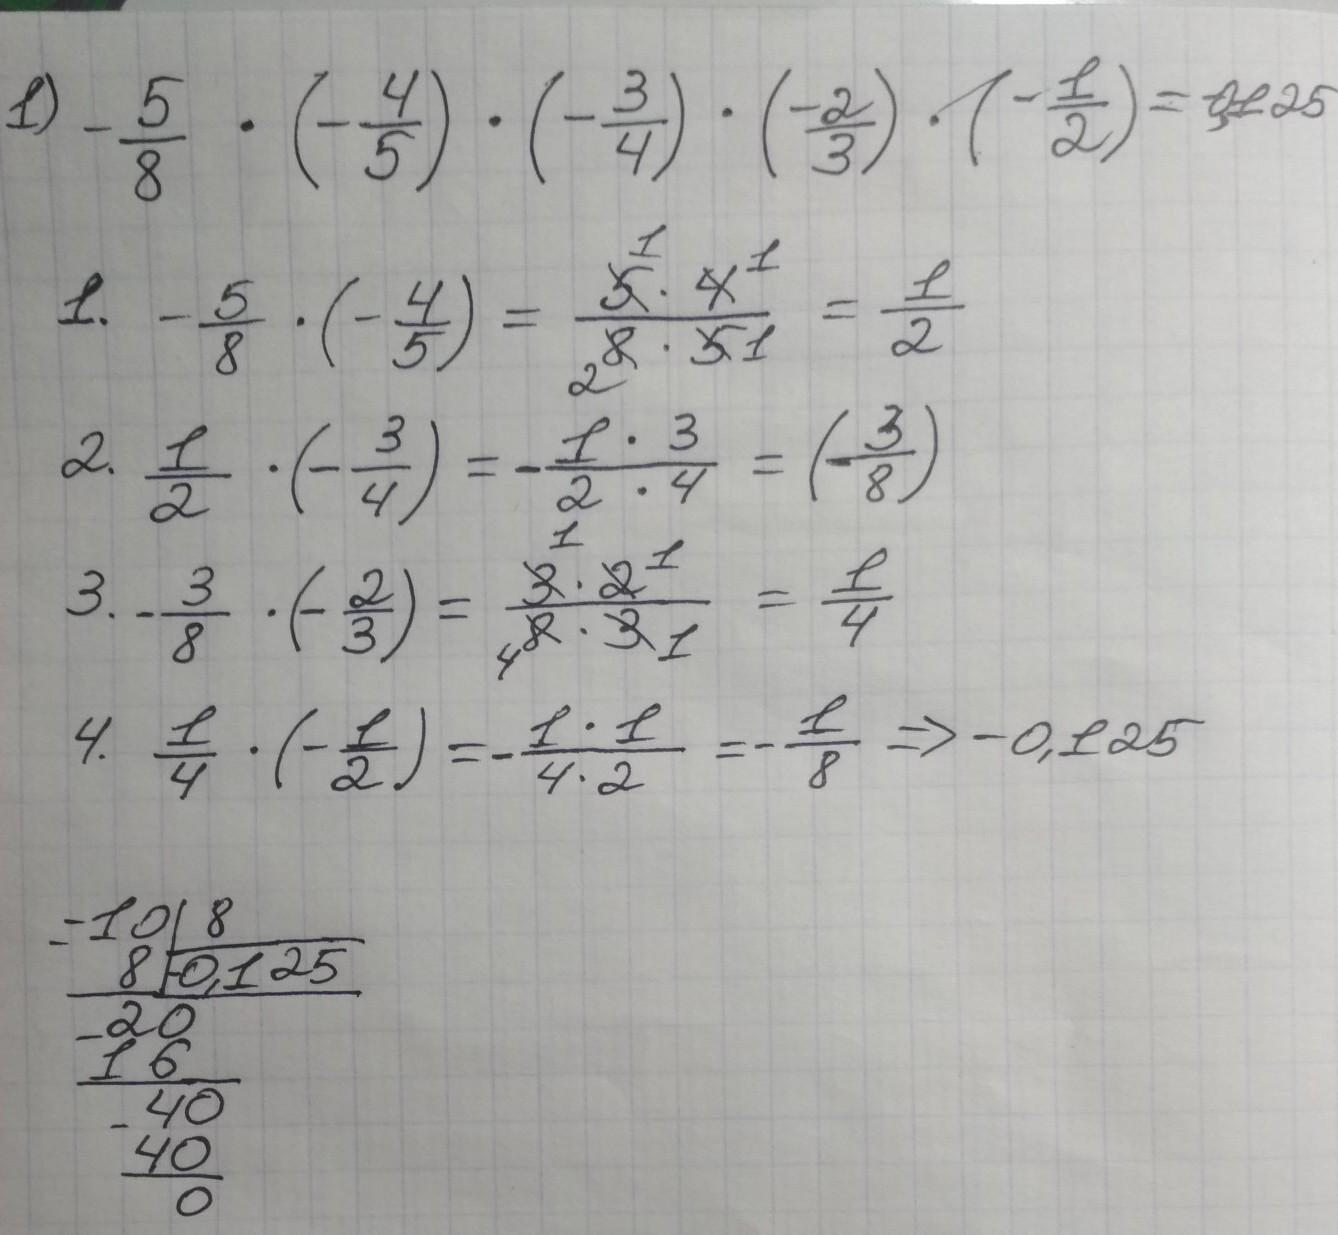 1) -5/8 · (-4/5) · (-3/4) · (-2/3) · (-1/2) = 0,125
1. -5/8 · (-4/5) = 5¹ · 4¹ / ₂8 · 5 1 = 1/2
2. 1/2 · (-3/4) = -1 · 3 / 2 · 4 = (-3/8)
3. -3/8 · (-2/3) = 3¹ · 2¹ / ₄8 · 3 1 = 1/4
4. 1/4 · (-1/2) = -1 · 1 / 4 · 2 = -1/8 => -0,125
-10 | 8
8 | -0,125
-20
16
-40
40
0